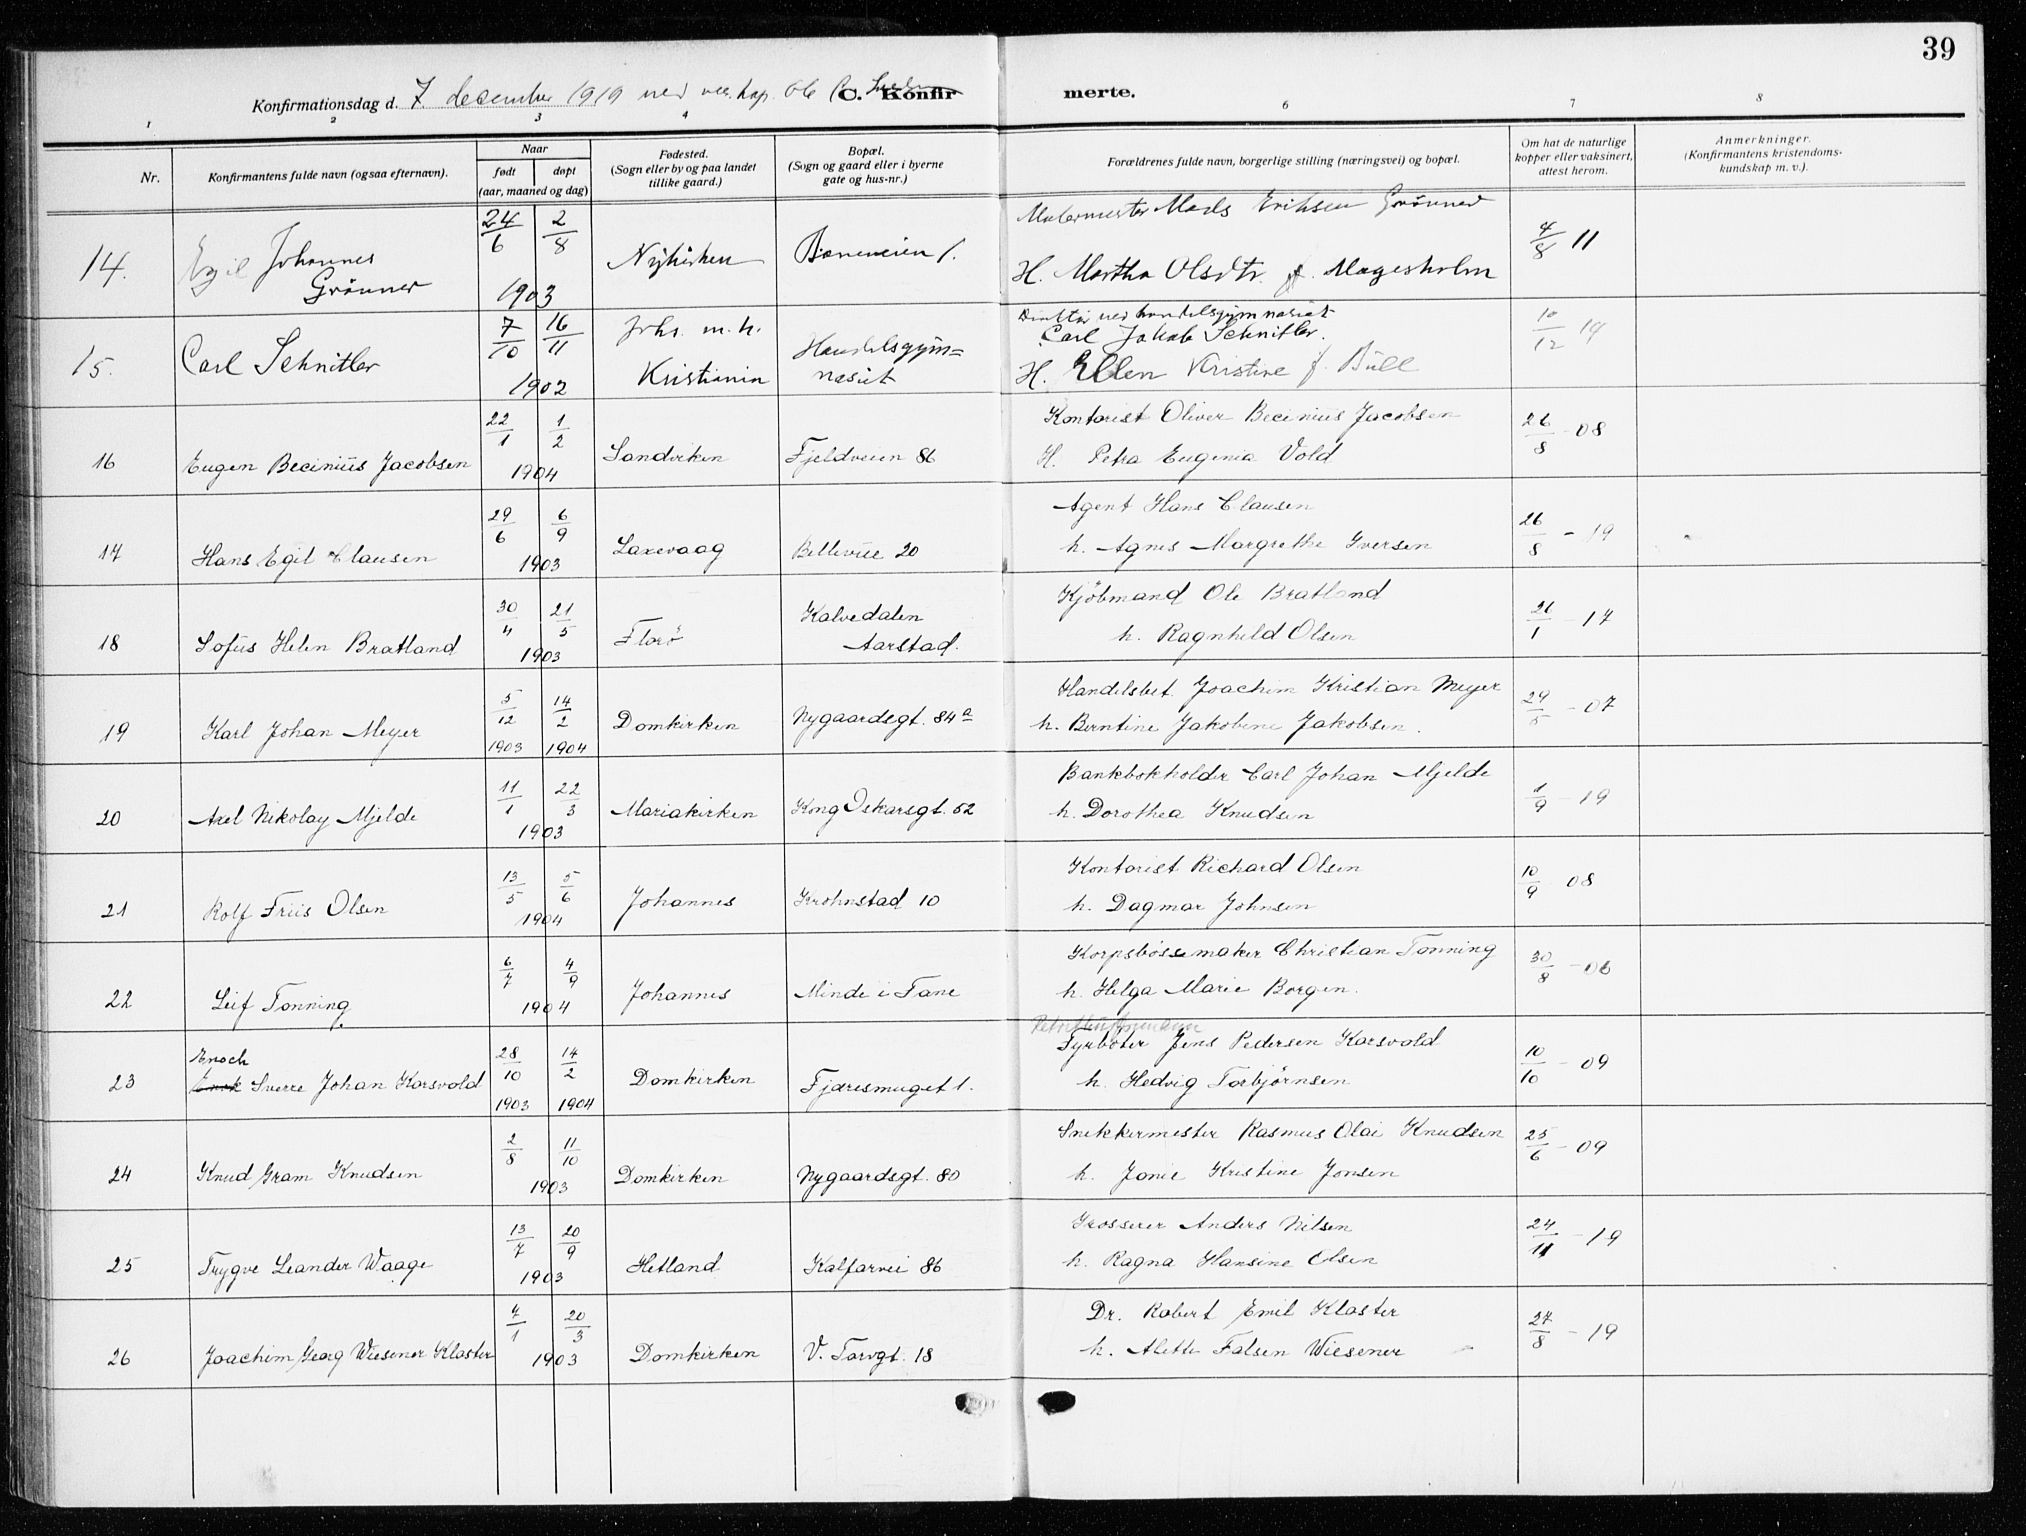 39
Konfirmationsdag d. 7 december 1919 ved res. kap. C. Konfirmerte.
1 2 3 4 6 7 8
Nr.
Konfirmantens fulde navn (ogsaa efternavn).
Naar
født døpt
(aar, maaned og dag)
Fødested.
(Sogn eller by og paa landet
tillike gaard.)
Bopæl.
(Sogn og gaard eller i byerne
gate og hus-nr.)
Forældrenes fulde navn, borgerlige stilling (næringsvei) og bopæl.
Om hat de naturlige
kopper eller vaksinert,
attest herom.
Anmerkninger.
(Konfirmantens kristendoms-
kundskap m. v.).
Malermester Mads Eriksen Grönner
14. Egil Johannes 24/6 2/8 Nykirken 4/8 11
Grönner 1903 H. Martha Olsdtr. f. Magesholm
ved handelsgymnasiet
15. Carl Schnitler 7/10 16/11 Joh. m. h. Handelsgym= Carl Jakob Schnitler. 10/12 19
1902 Kristiania nasiet H. Ellen Kristine f. Bull
22/1 1/2 Kontorist Oliver Becinius Jacobsen 26/8 - 08
16 Eugen Becinius Jacobsen 1904 Sandviken Fjeldveien 86 H. Petra Eugenia Vold
29/6 6/9 Agent Hans Clausen 26/8 - 19
17 Hans Egil Clausen 1903 Laxevaag Bellevue 20 h. Agnes Margrethe Iversen
30/4 21/5 Kalvedalen Kjöbmand Ole Bratland 21/1 - 17
18 Sofus Helen Bratland 1903 Florö Aarstad. h. Ragnhild Olsen
5/12 14/2 Handelsbet. Joachim Kristian Meyer 29/5 - 07
19 Karl Johan Meyer 1903 1904 Domkirken Nygaardsgt. 84a h. Berntine Jakobine Jakobsen.
11/1 22/3 Bankbokholder Carl Johan Mjelde 1/9 - 19
20 Axel Nikolay Mjelde 1903 Mariakirken Kong Oskarsgt. 52 h. Dorothea Knudsen
13/5 5/6 Kontorist Richard Olsen 10/9 08
21 Rolf Friis Olsen 1904 Johannes Krohnstad 10 h. Dagmar Johnsen
6/7 4/9 Korpsbössemaker Christian Tonning 30/8 - 06
22 Leif Tonning 1904 Johannes Minde i Fane h. Helga Marie Borgen.
Enoch 28/10 14/2 Fyrböter Jens Pedersen Korsvold 10/10 - 09
23 Sverre Johan Korsvold 1903 1904 Domkirken Fjæresmuget 1. h. Hedvig Torbjørnsen
2/8 11/10 Snekkermester Rasmus Olai Knudsen 25/6 - 09
24 Knud Gram Knudsen 1903 Domkirken Nygaardsgt. 80 h. Jonie Kristine Jonsen
13/7 20/9 Grosserer Anders Nilsen 24/11 - 19
25 Trygve Leander Waage 1903 Hetland Kalfarvei 86 h. Ragna Hansine Olsen
7/1 20/3 Dr. Robert Emil Kloster 27/8 - 19
26 Joachim Georg Wiesener Kloster 1903 Domkirken V. Torvgt. 18 h. Alette Falsen Wiesener